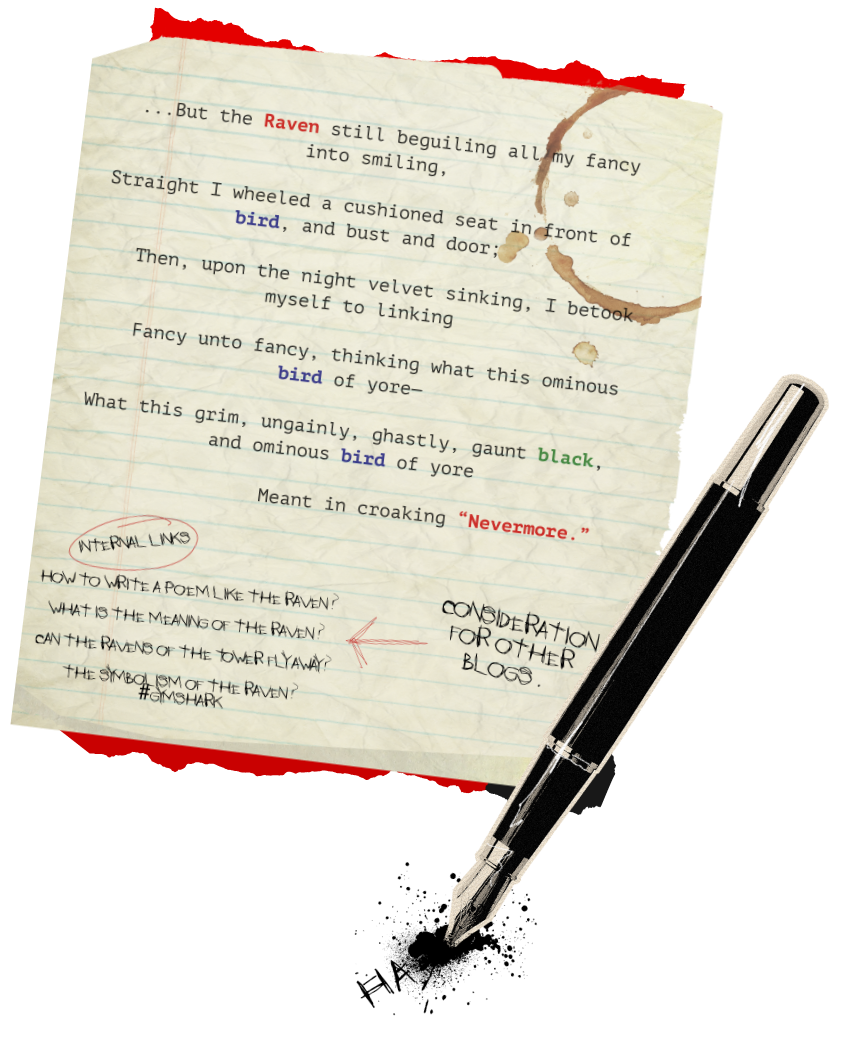 ...But the Raven still beguiling all my fancy
into smiling,
Straight I wheeled a cushioned seat in front of
bird, and bust and door;
Then, upon the night velvet sinking, I betook
myself to linking
Fancy unto fancy, thinking what this ominous
bird of yore—
What this grim, ungainly, ghastly, gaunt black,
and ominous bird of yore
Meant in croaking “Nevermore.”
INTERNAL LINKS
HOW TO WRITE A POEM LIKE THE RAVEN?
WHAT IS THE MEANING OF THE RAVEN?
CAN THE RAVENS OF THE TOWER FLY AWAY?
THE SYMBOLISM OF THE RAVEN?
#GYMSHARK
CONSIDERATION
FOR OTHER
BLOGS.
HA